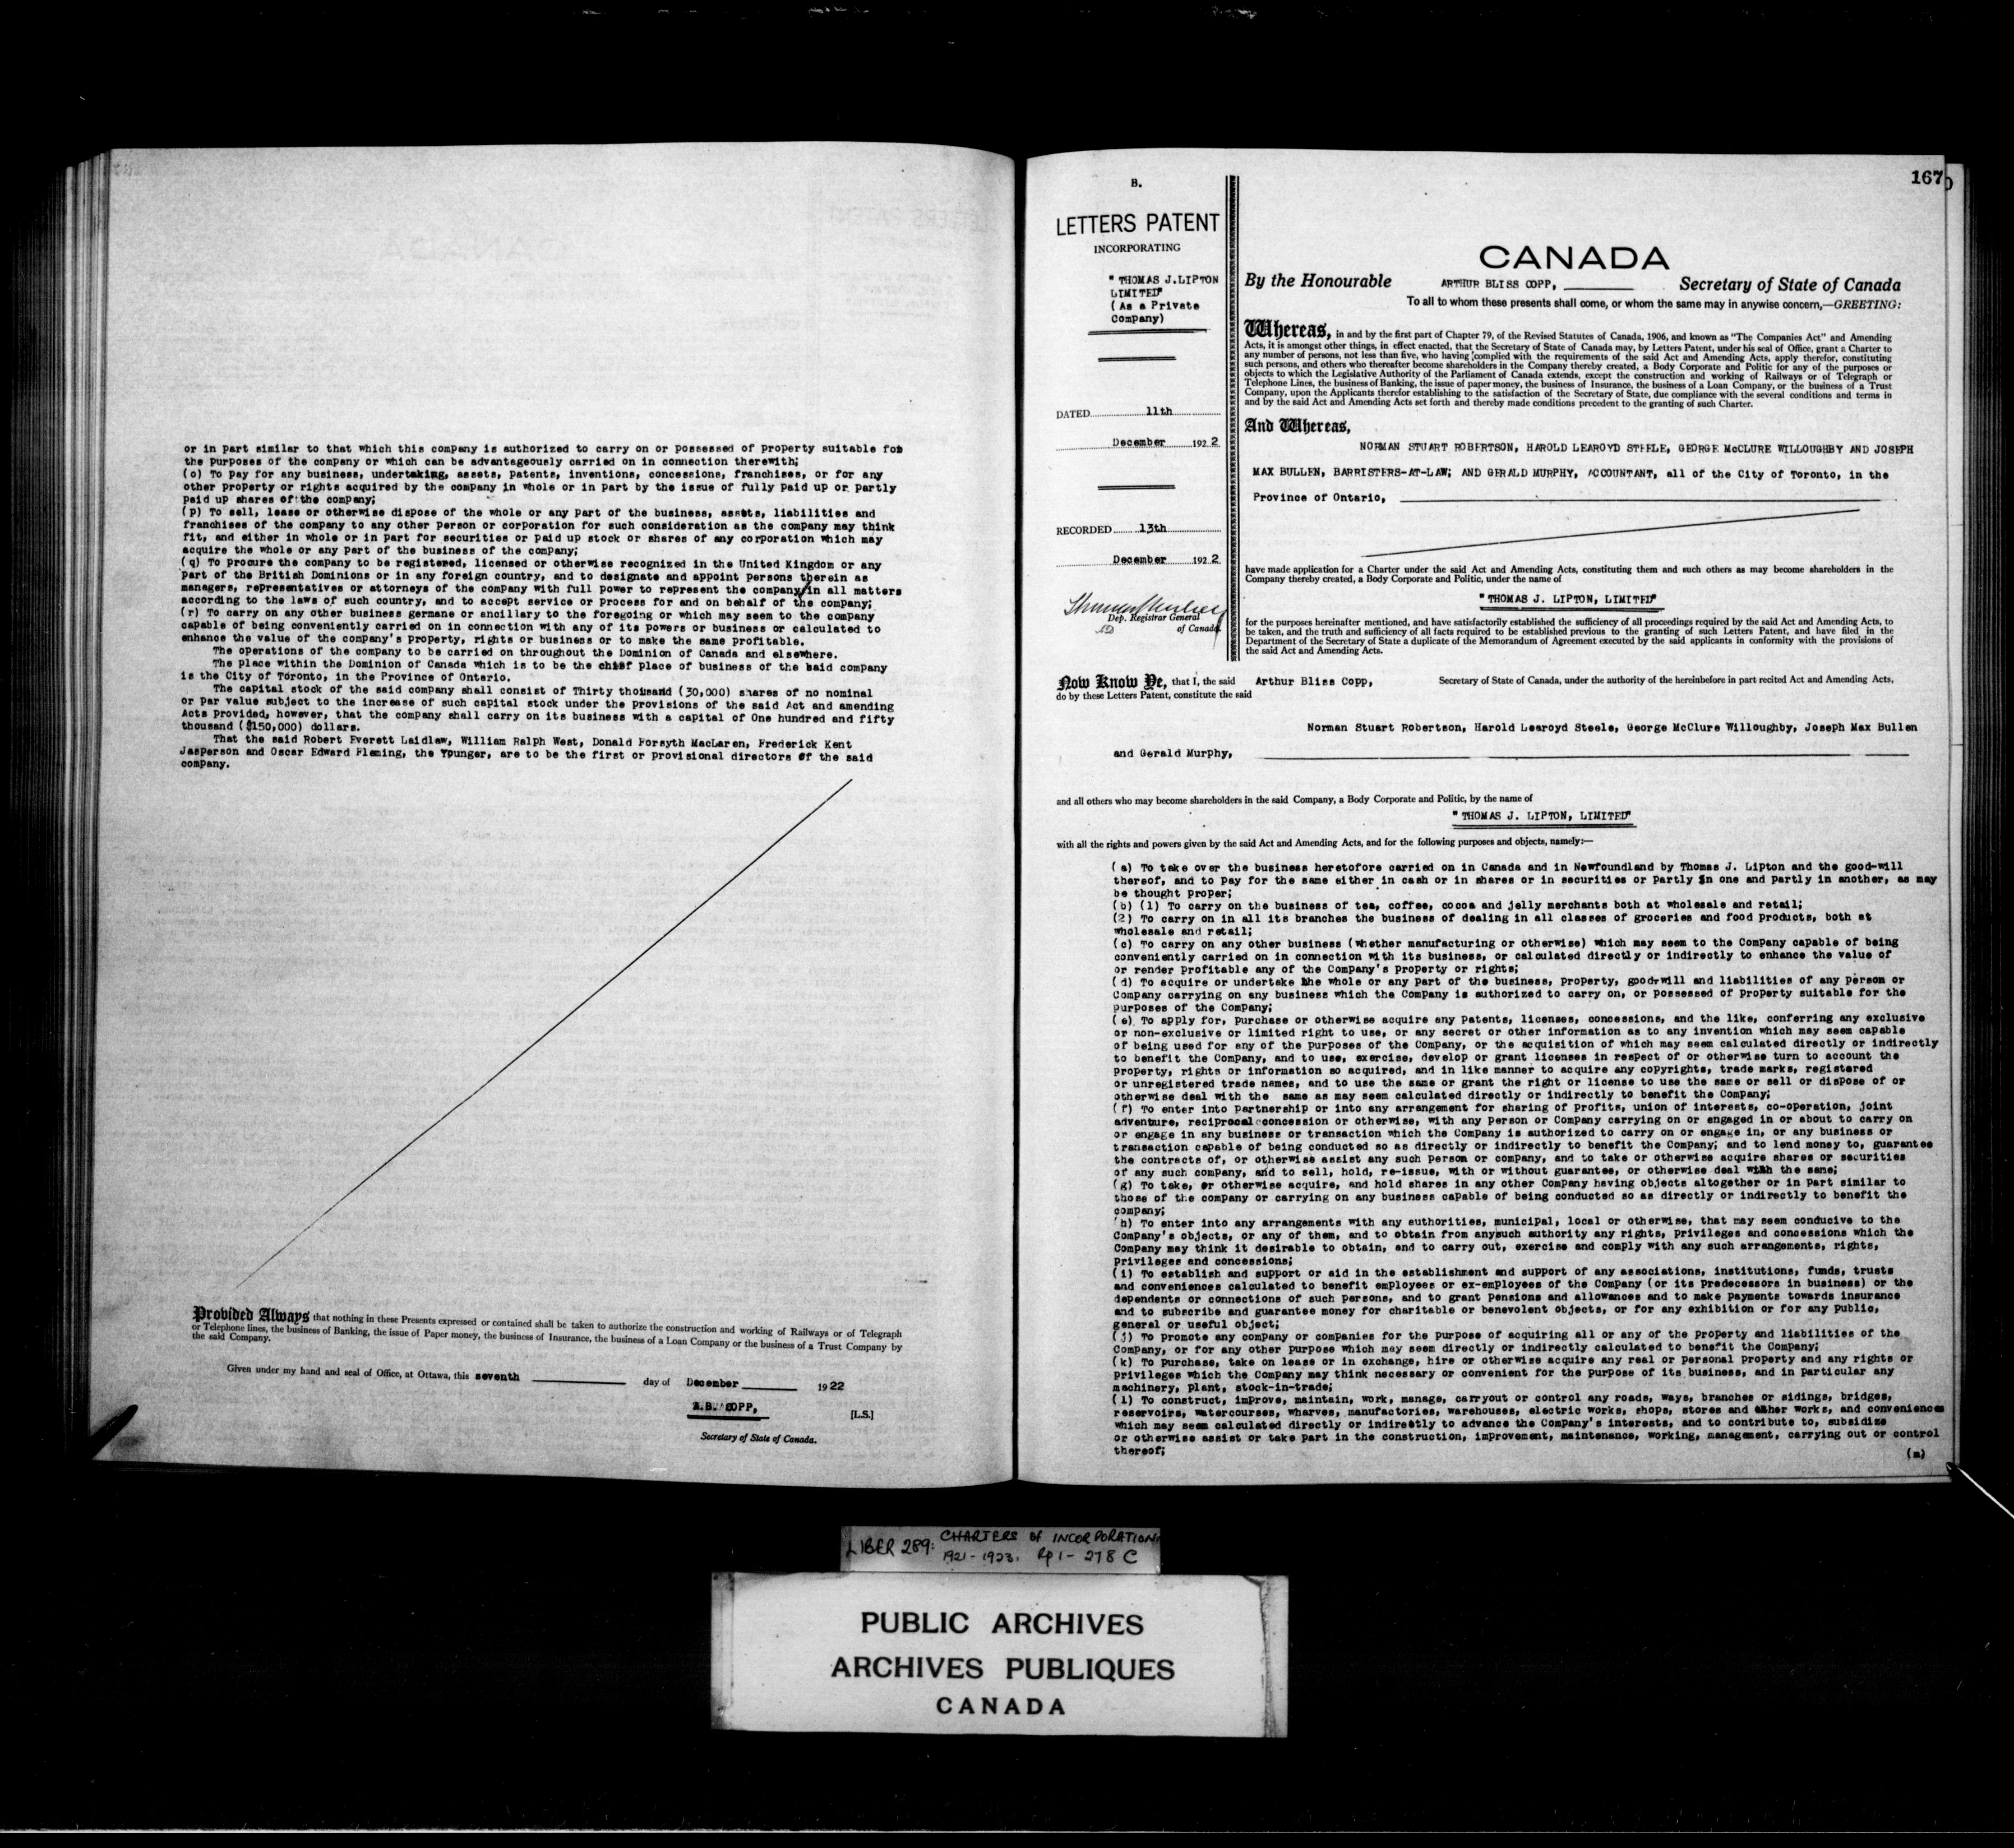 or in part similar to that which this company is authorized to carry on or possessed of property suitable fob
the purposes of the company or which can be advantageously carried on in connection therewith;
(o) To pay for any business, undertaking, assets, patents, inventions, concessions, franchises, or for any
other property or rights acquired by the company in whole or in part by the issue of fully paid up or partly
paid up shares of the company;
(p) To sell, lease or otherwise dispose of the whole or any part of the business, assets, liabilities and
franchises of the company to any other person or corporation for such consideration as the company may think
fit, and either in whole or in part for securities or paid up stock or shares of any corporation which may
acquire the whole or any part of the business of the company;
(q) To procure the company to be registered, licensed or otherwise recognized in the United Kingdom or any
part of the British Dominions or in any foreign country, and to designate and appoint persons therein as
managers, representatives or attorneys of the company with full power to represent the company in all matters
according to the laws of such country, and to accept service or process for and on behalf of the company;
(r) To carry on any other business germane or ancillary to the foregoing or which may seem to the company
capable of being conveniently carried on in connection with any of its powers or business or calculated to
enhance the value of the company's property, rights or business or to make the same profitable.
The operations of the company to be carried on throughout the Dominion of Canada and elsewhere.
The place within the Dominion of Canada which is to be the chief place of business of the said company
is the City of Toronto, in the Province of Ontario.
The capital stock of the said company shall consist of Thirty thousand (30,000) shares of no nominal
or par value subject to the increase of such capital stock under the provisions of the said Act and amending
Acts provided, however, that the company shall carry on its business with a capital of One hundred and fifty
thousand ($150,000) dollars.
That the said Robert Everett Laidlaw, William Ralph West, Donald Forsyth MacLaren, Frederick Kent
Jasperson and Oscar Edward Fleming, the Younger, are to be the first or provisional directors of the said
company.
Provided Always that nothing in these Presents expressed or contained shall be taken to authorize the construction and working of Railways or of Telegraph
or Telephone lines, the business of Banking, the issue of Paper money, the business of Insurance, the business of a Loan Company or the business of a Trust Company by
the said Company.
Given under my hand and seal of Office, at Ottawa, this seventh day of December 1922
A.B. COPP,
[L.S.]
Secretary of State of Canada.
167
B.
LETTERS PATENT
INCORPORATING
"THOMAS J.LIPTON
LIMITED"
(As a Private
Company)
DATED 11th
December 1922
RECORDED 13th
December 1922
Dep. Registrar General
of Canada
CANADA
By the Honourable ARTHUR BLISS COPP, Secretary of State of Canada
To all to whom these presents shall come, or whom the same may in anywise concern,—GREETING:
Whereas, in and by the first part of Chapter 79, of the Revised Statutes of Canada, 1906, and known as "The Companies Act" and Amending
Acts, it is amongst other things, in effect enacted, that the Secretary of State of Canada may, by Letters Patent, under his seal of Office, grant a Charter to
any number of persons, not less than five, who having complied with the requirements of the said Act and Amending Acts, apply therefor, constituting
such persons, and others who thereafter become shareholders in the Company thereby created, a Body Corporate and Politic for any of the purposes or
objects to which the Legislative Authority of the Parliament of Canada extends, except the construction and working of Railways or of Telegraph or
Telephone Lines, the business of Banking, the issue of paper money, the business of Insurance, the business of a Loan Company, or the business of a Trust
Company, upon the Applicants therefor establishing to the satisfaction of the Secretary of State, due compliance with the several conditions and terms in
and by the said Act and Amending Acts set forth and thereby made conditions precedent to the granting of such Charter.
And Whereas,
NORMAN STUART ROBERTSON, HAROLD LEAROYD STEELE, GEORGE McCLURE WILLOUGHBY AND JOSEPH
MAX BULLEN, BARRISTERS-AT-LAW; AND GERALD MURPHY, ACCOUNTANT, all of the City of Toronto, in the
Province of Ontario,
have made application for a Charter under the said Act and Amending Acts, constituting them and such others as may become shareholders in the
Company thereby created, a Body Corporate and Politic, under the name of
"THOMAS J. LIPTON, LIMITED"
for the purposes hereinafter mentioned, and have satisfactorily established the sufficiency of all proceedings required by the said Act and Amending Acts, to
be taken, and the truth and sufficiency of all facts required to be established previous to the granting of such Letters Patent, and have filed in the
Department of the Secretary of State a duplicate of the Memorandum of Agreement executed by the said applicants in conformity with the provisions of
the said Act and Amending Acts.
Now Know Ye, that I, the said Arthur Bliss Copp, Secretary of State of Canada, under the authority of the hereinbefore in part recited Act and Amending Acts,
do by these Letters Patent, constitute the said
Norman Stuart Robertson, Harold Learoyd Steele, George McClure Willoughby, Joseph Max Bullen
and Gerald Murphy,
and all others who may become shareholders in the said Company, a Body Corporate and Politic, by the name of
"THOMAS J. LIPTON, LIMITED"
with all the rights and powers given by the said Act and Amending Acts, and for the following purposes and objects, namely:—
(a) To take over the business heretofore carried on in Canada and in Newfoundland by Thomas J. Lipton and the good-will
thereof, and to pay for the same either in cash or in shares or in securities or partly in one and partly in another, as may
be thought proper;
(b) (1) To carry on the business of tea, coffee, cocoa and jelly merchants both at wholesale and retail;
(2) To carry on in all its branches the business of dealing in all classes of groceries and food products, both at
wholesale and retail;
(c) To carry on any other business (whether manufacturing or otherwise) which may seem to the Company capable of being
conveniently carried on in connection with its business, or calculated directly or indirectly to enhance the value of
or render profitable any of the Company's property or rights;
(d) To acquire or undertake the whole or any part of the business, property, good-will and liabilities of any person or
Company carrying on any business which the Company is authorized to carry on, or possessed of property suitable for the
purposes of the Company;
(e) To apply for, purchase or otherwise acquire any patents, licenses, concessions, and the like, conferring any exclusive
or non-exclusive or limited right to use, or any secret or other information as to any invention which may seem capable
of being used for any of the purposes of the Company, or the acquisition of which may seem calculated directly or indirectly
to benefit the Company, and to use, exercise, develop or grant licenses in respect of or otherwise turn to account the
property, rights or information so acquired, and in like manner to acquire any copyrights, trade marks, registered
or unregistered trade names, and to use the same or grant the right or license to use the same or sell or dispose of or
otherwise deal with the same as may seem calculated directly or indirectly to benefit the Company;
(f) To enter into partnership or into any arrangement for sharing of profits, union of interests, co-operation, joint
adventure, reciprocal concession or otherwise, with any person or Company carrying on or engaged in or about to carry on
or engage in any business or transaction which the Company is authorized to carry on or engage in, or any business or
transaction capable of being conducted so as directly or indirectly to benefit the Company; and to lend money to, guarantee
the contracts of, or otherwise assist any such person or company, and to take or otherwise acquire shares or securities
of any such company, and to sell, hold, re-issue, with or without guarantee, or otherwise deal with the same;
(g) To take, or otherwise acquire, and hold shares in any other Company having objects altogether or in part similar to
those of the company or carrying on any business capable of being conducted so as directly or indirectly to benefit the
company;
(h) To enter into any arrangements with any authorities, municipal, local or otherwise, that may seem conducive to the
Company's objects, or any of them, and to obtain from anysuch authority any rights, privileges and concessions which the
Company may think it desirable to obtain, and to carry out, exercise and comply with any such arrangements, rights,
privileges and concessions;
(i) To establish and support or aid in the establishment and support of any associations, institutions, funds, trusts
and conveniences calculated to benefit employees or ex-employees of the Company (or its predecessors in business) or the
dependents or connections of such persons, and to grant pensions and allowances and to make payments towards insurance
and to subscribe and guarantee money for charitable or benevolent objects, or for any exhibition or for any public,
general or useful object;
(j) To promote any company or companies for the purpose of acquiring all or any of the property and liabilities of the
Company, or for any other purpose which may seem directly or indirectly calculated to benefit the Company;
(k) To purchase, take on lease or in exchange, hire or otherwise acquire any real or personal property and any rights or
privileges which the Company may think necessary or convenient for the purpose of its business, and in particular any
machinery, plant, stock-in-trade;
(l) To construct, improve, maintain, work, manage, carryout or control any roads, ways, branches or sidings, bridges,
reservoirs, watercourses, wharves, manufactories, warehouses, electric works, shops, stores and other works, and conveniences
which may seem calculated directly or indirectly to advance the Company's interests, and to contribute to, subsidize
or otherwise assist or take part in the construction, improvement, maintenance, working, management, carrying out or control
thereof;
(m)
LIBER 289: CHARTERS OF INCORPORATION
1921-1923. pp 1-278 C
PUBLIC ARCHIVES
ARCHIVES PUBLIQUES
CANADA